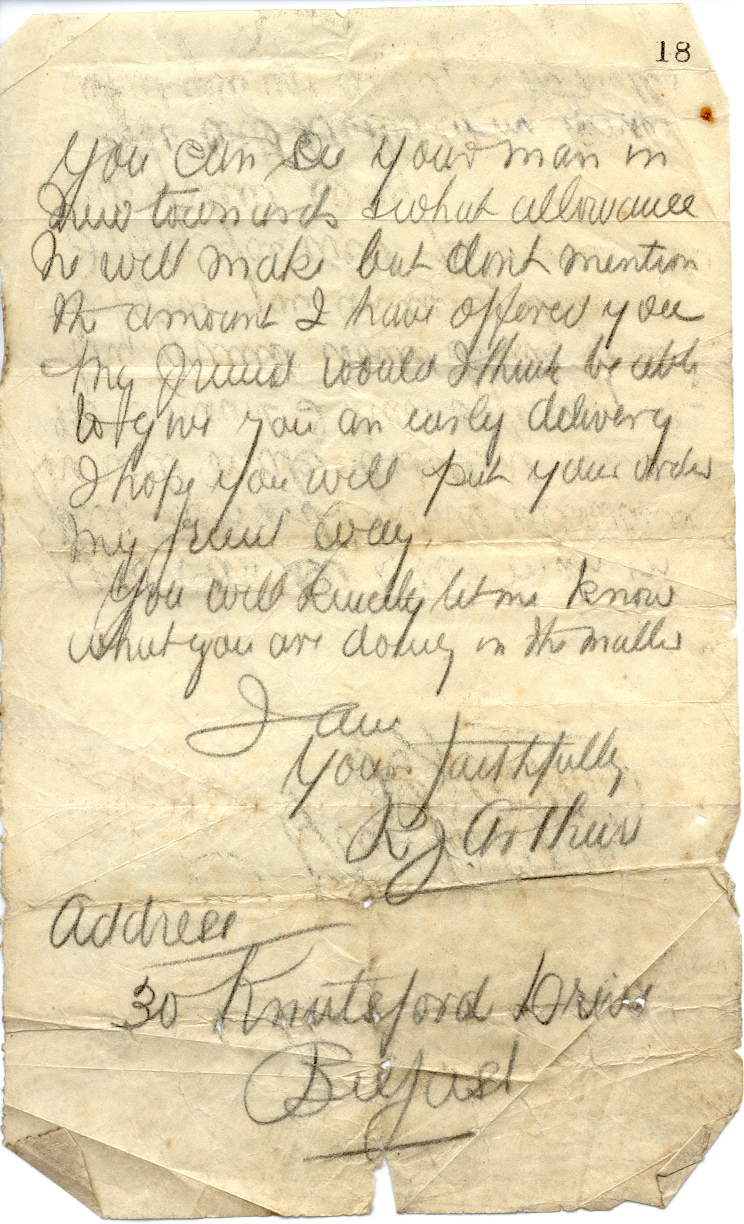 18
You can see your man in
Newtownards & what allowance
he will make but dont mention
the amount I have offered you
my friend would I think be able
to give you an early delivery
I hope you will put your order
my friend way.
You will kindly let me know
what you are doing in the matter
I am
Yours faithfully
R J Arthur
Address
30 Knutsford Drive
Belfast